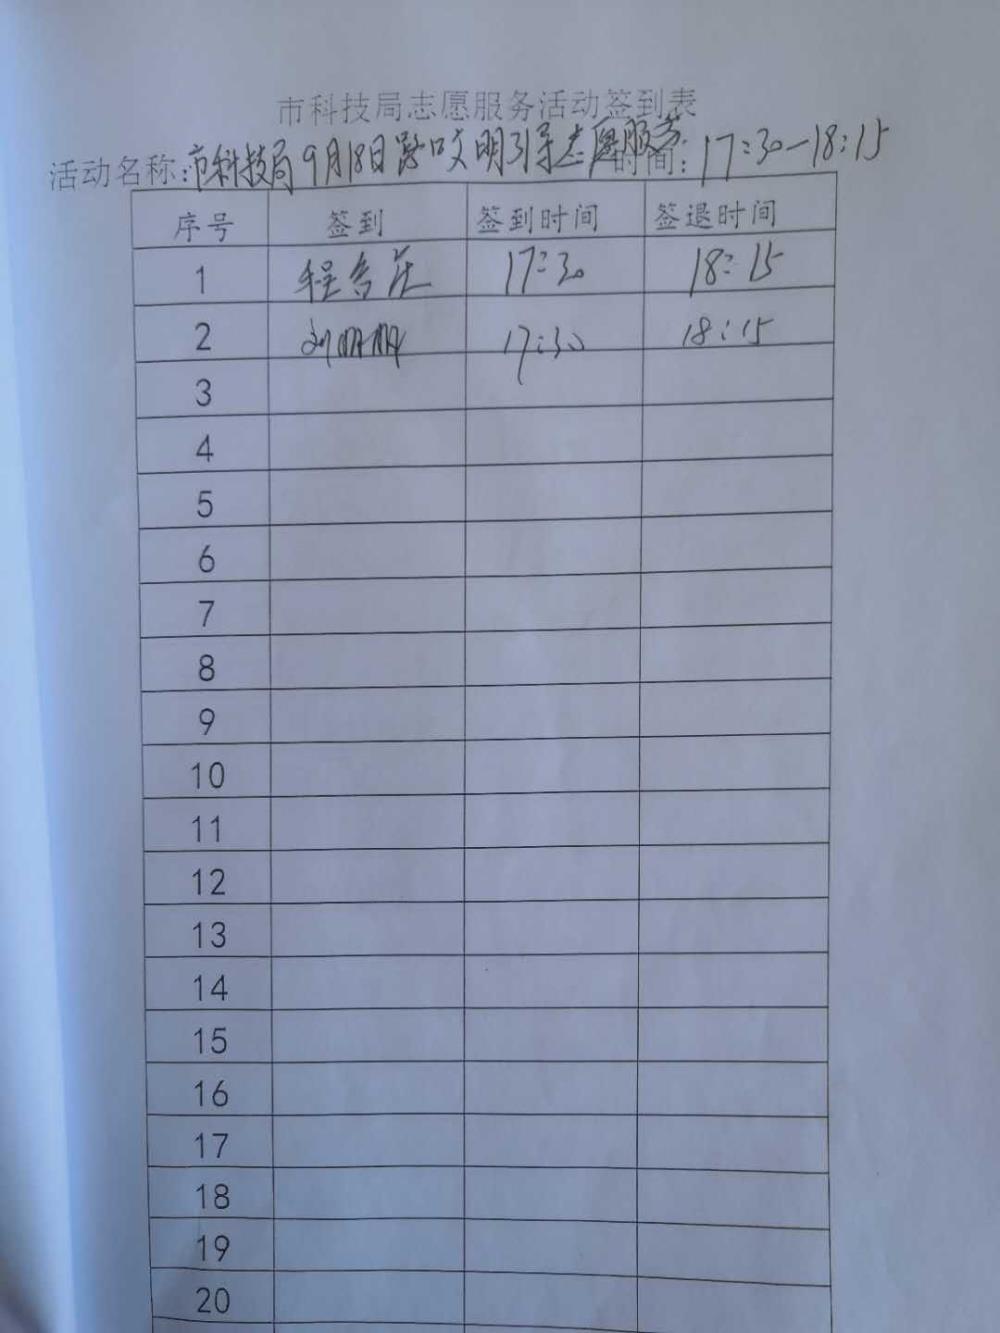 市科技局志愿服务活动签到表
活动名称:市科技局9月18日路口文明引导志愿服务 时间:17:30-18:15
序号 签到 签到时间 签退时间
1 程 17:30 18:15
2 刘明明 17:30 18:15
3
4
5
6
7
8
9
10
11
12
13
14
15
16
17
18
19
20